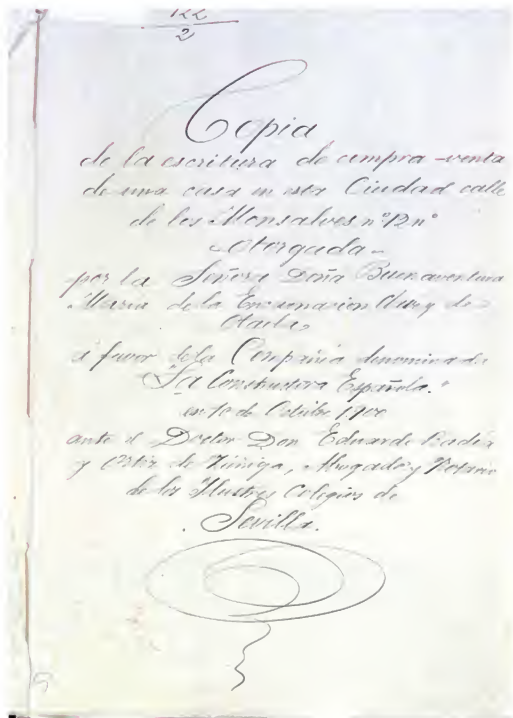 122
2
Copia
de la escritura de compra-venta
de una casa en esta Ciudad calle
de los Monsalves nº 12 nº
- Otorgada -
por la Señora Doña Buenaventura
Maria de la Encarnacion y de
á favor de la Compañia denominada
"La Constructora Española."
en 10 de Octubre 1900
ante el Doctor Don Eduardo Badía
y Ortiz de Zúñiga, Abogado y Notario
de los Ilustres Colegios de
Sevilla.